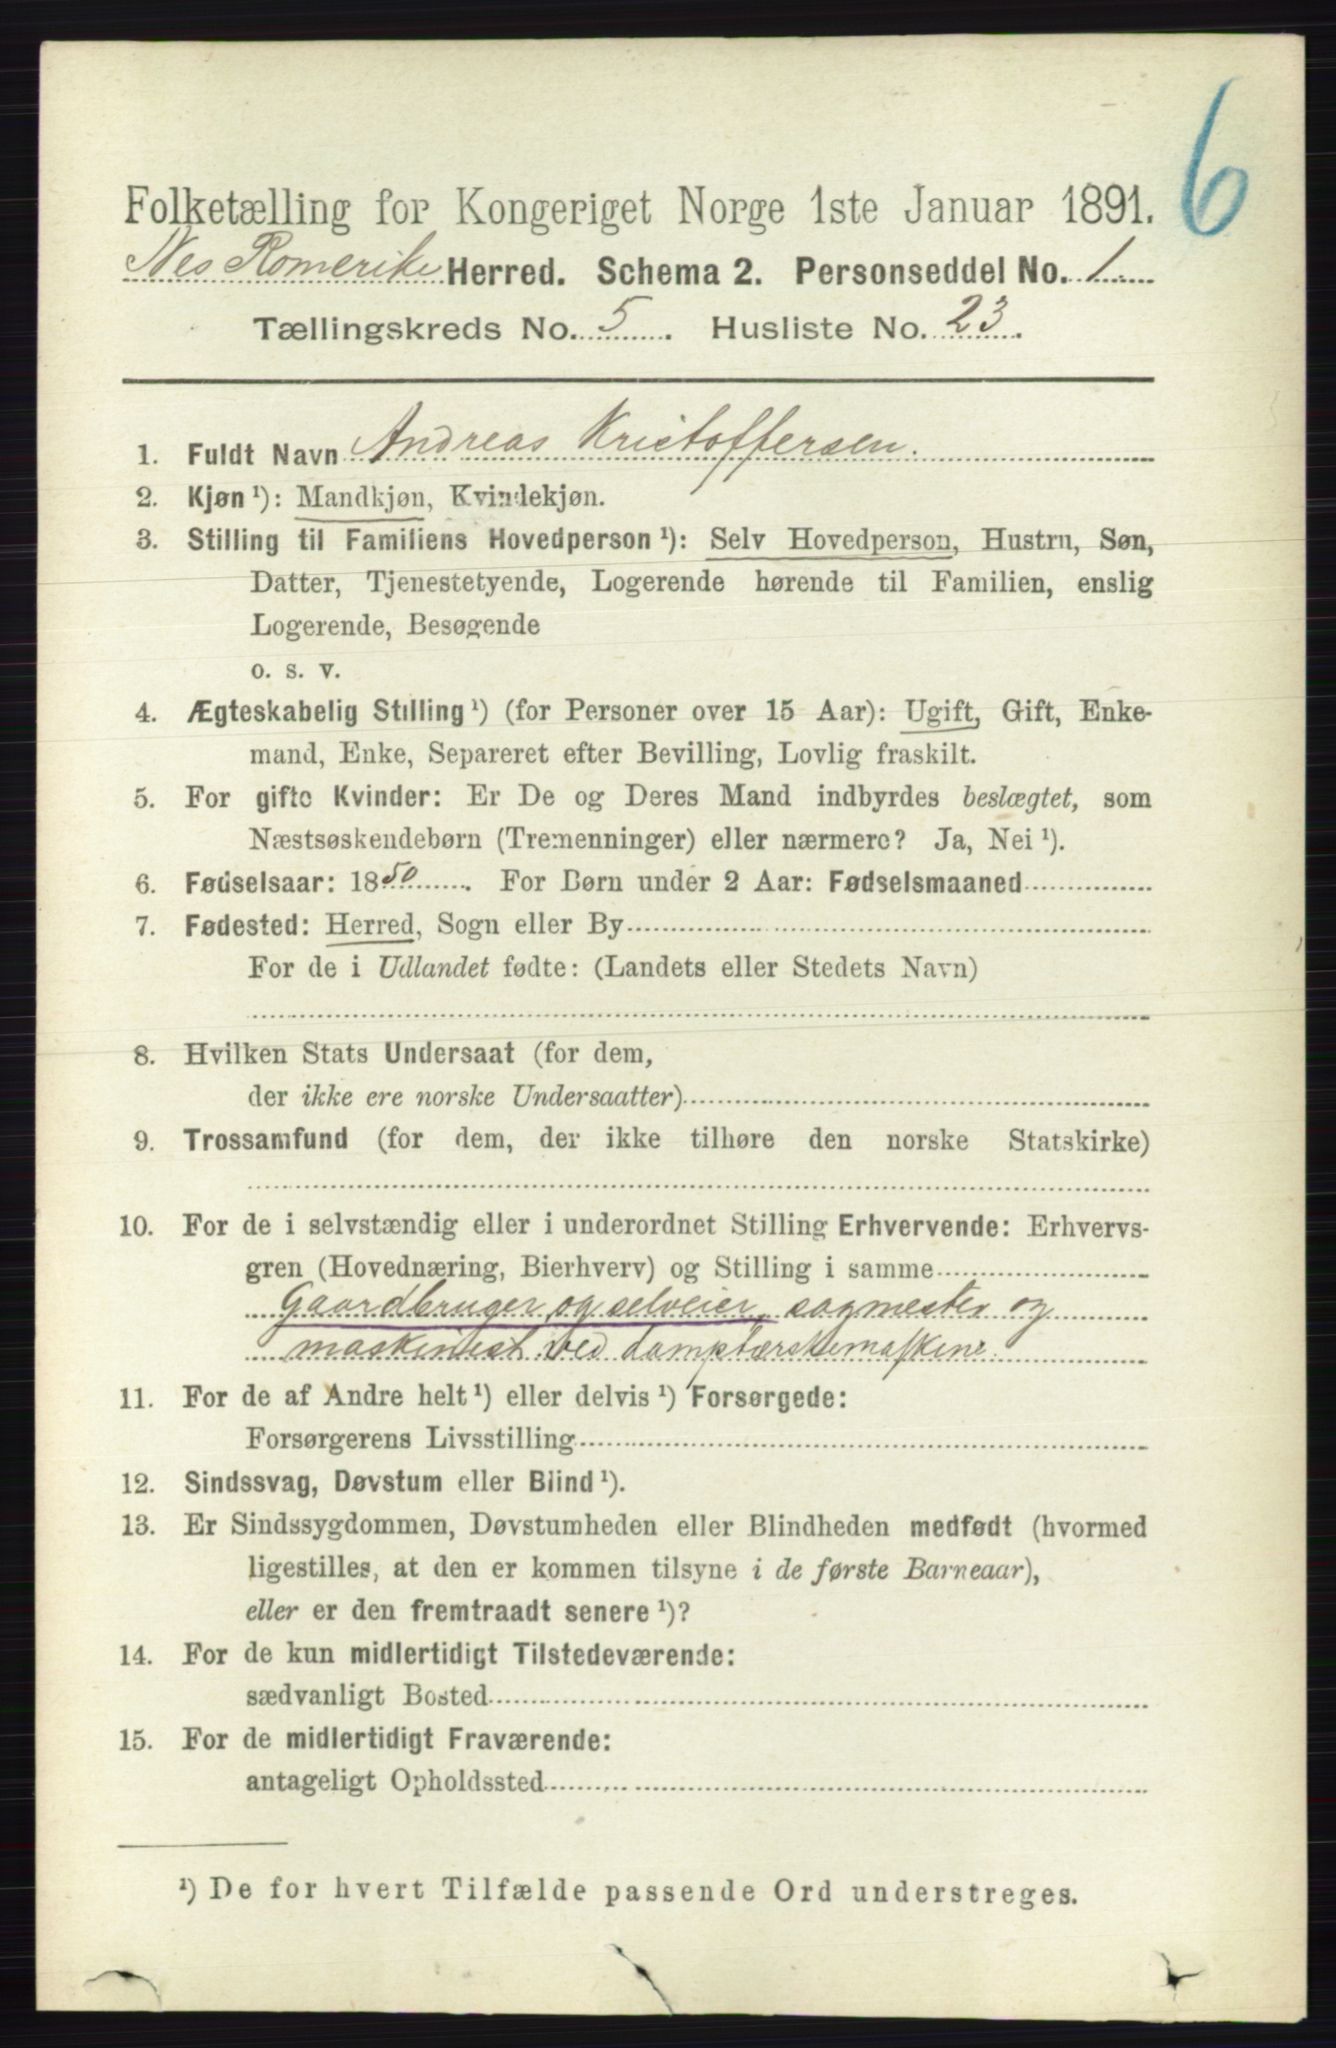 6
Folketælling for Kongeriget Norge 1ste Januar 1891.
Nes Romerike Herred. Schema 2. Personseddel No. 1
Tællingskreds No. 5. Husliste No. 23.
1. Fuldt Navn Andreas Kristoffersen.
2. Kjøn ¹): Mandkjøn, Kvindekjøn.
3. Stilling til Familiens Hovedperson ¹): Selv Hovedperson, Hustru, Søn,
Datter, Tjenestetyende, Logerende hørende til Familien, enslig
Logerende, Besøgende
o. s. v.
4. Ægteskabelig Stilling ¹) (for Personer over 15 Aar): Ugift, Gift, Enke-
mand, Enke, Separeret efter Bevilling, Lovlig fraskilt.
5. For gifte Kvinder: Er De og Deres Mand indbyrdes beslægtet, som
Næstsøskendebørn (Tremenninger) eller nærmere? Ja, Nei ¹).
6. Fødselsaar: 1850. For Børn under 2 Aar: Fødselsmaaned
7. Fødested: Herred, Sogn eller By
For de i Udlandet fødte: (Landets eller Stedets Navn)
8. Hvilken Stats Undersaat (for dem,
der ikke ere norske Undersaatter)
9. Trossamfund (for dem, der ikke tilhøre den norske Statskirke)
10. For de i selvstændig eller i underordnet Stilling Erhvervende: Erhvervs-
gren (Hovednæring, Bierhverv) og Stilling i samme
Gaardbruger og selveier, sagmester og
maskinist ved damptærskemaskine.
11. For de af Andre helt ¹) eller delvis ¹) Forsørgede:
Forsørgerens Livsstilling
12. Sindssvag, Døvstum eller Blind ¹).
13. Er Sindssygdommen, Døvstumheden eller Blindheden medfødt (hvormed
ligestilles, at den er kommen tilsyne i de første Barneaar),
eller er den fremtraadt senere ¹)?
14. For de kun midlertidigt Tilstedeværende:
sædvanligt Bosted
15. For de midlertidigt Fraværende:
antageligt Opholdssted
¹) De for hvert Tilfælde passende Ord understreges.